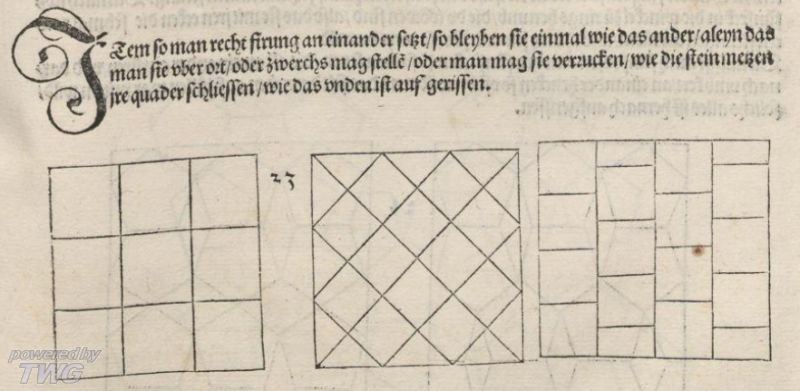 Item so man recht firung an einander setzt/so bleyben sie einmal wie das ander/aleyn das
man sie vber ort/oder zwerchs mag stellē/oder man mag sie verrucken/wie die steinmetzen
jre quader schliessen/wie das vnden ist auf gerissen.
23
powered by
TWG